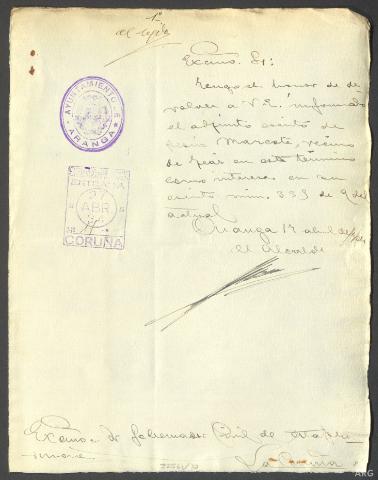 1º
Excmo. Sr:
Tengo el honor de de
volver a V.E. informado
el adjunto escrito de
Marcote, vecino
de en este término
como interesa en su
escrito núm. 339 de 9 del
actual
Aranga 17 abril de
El Alcalde
AYUNTAMIENTO DE
ARANGA
ENTRADA
27
ABR
CORUÑA
Excmo. Sr Gobernador Civil de
La Coruña
ARG